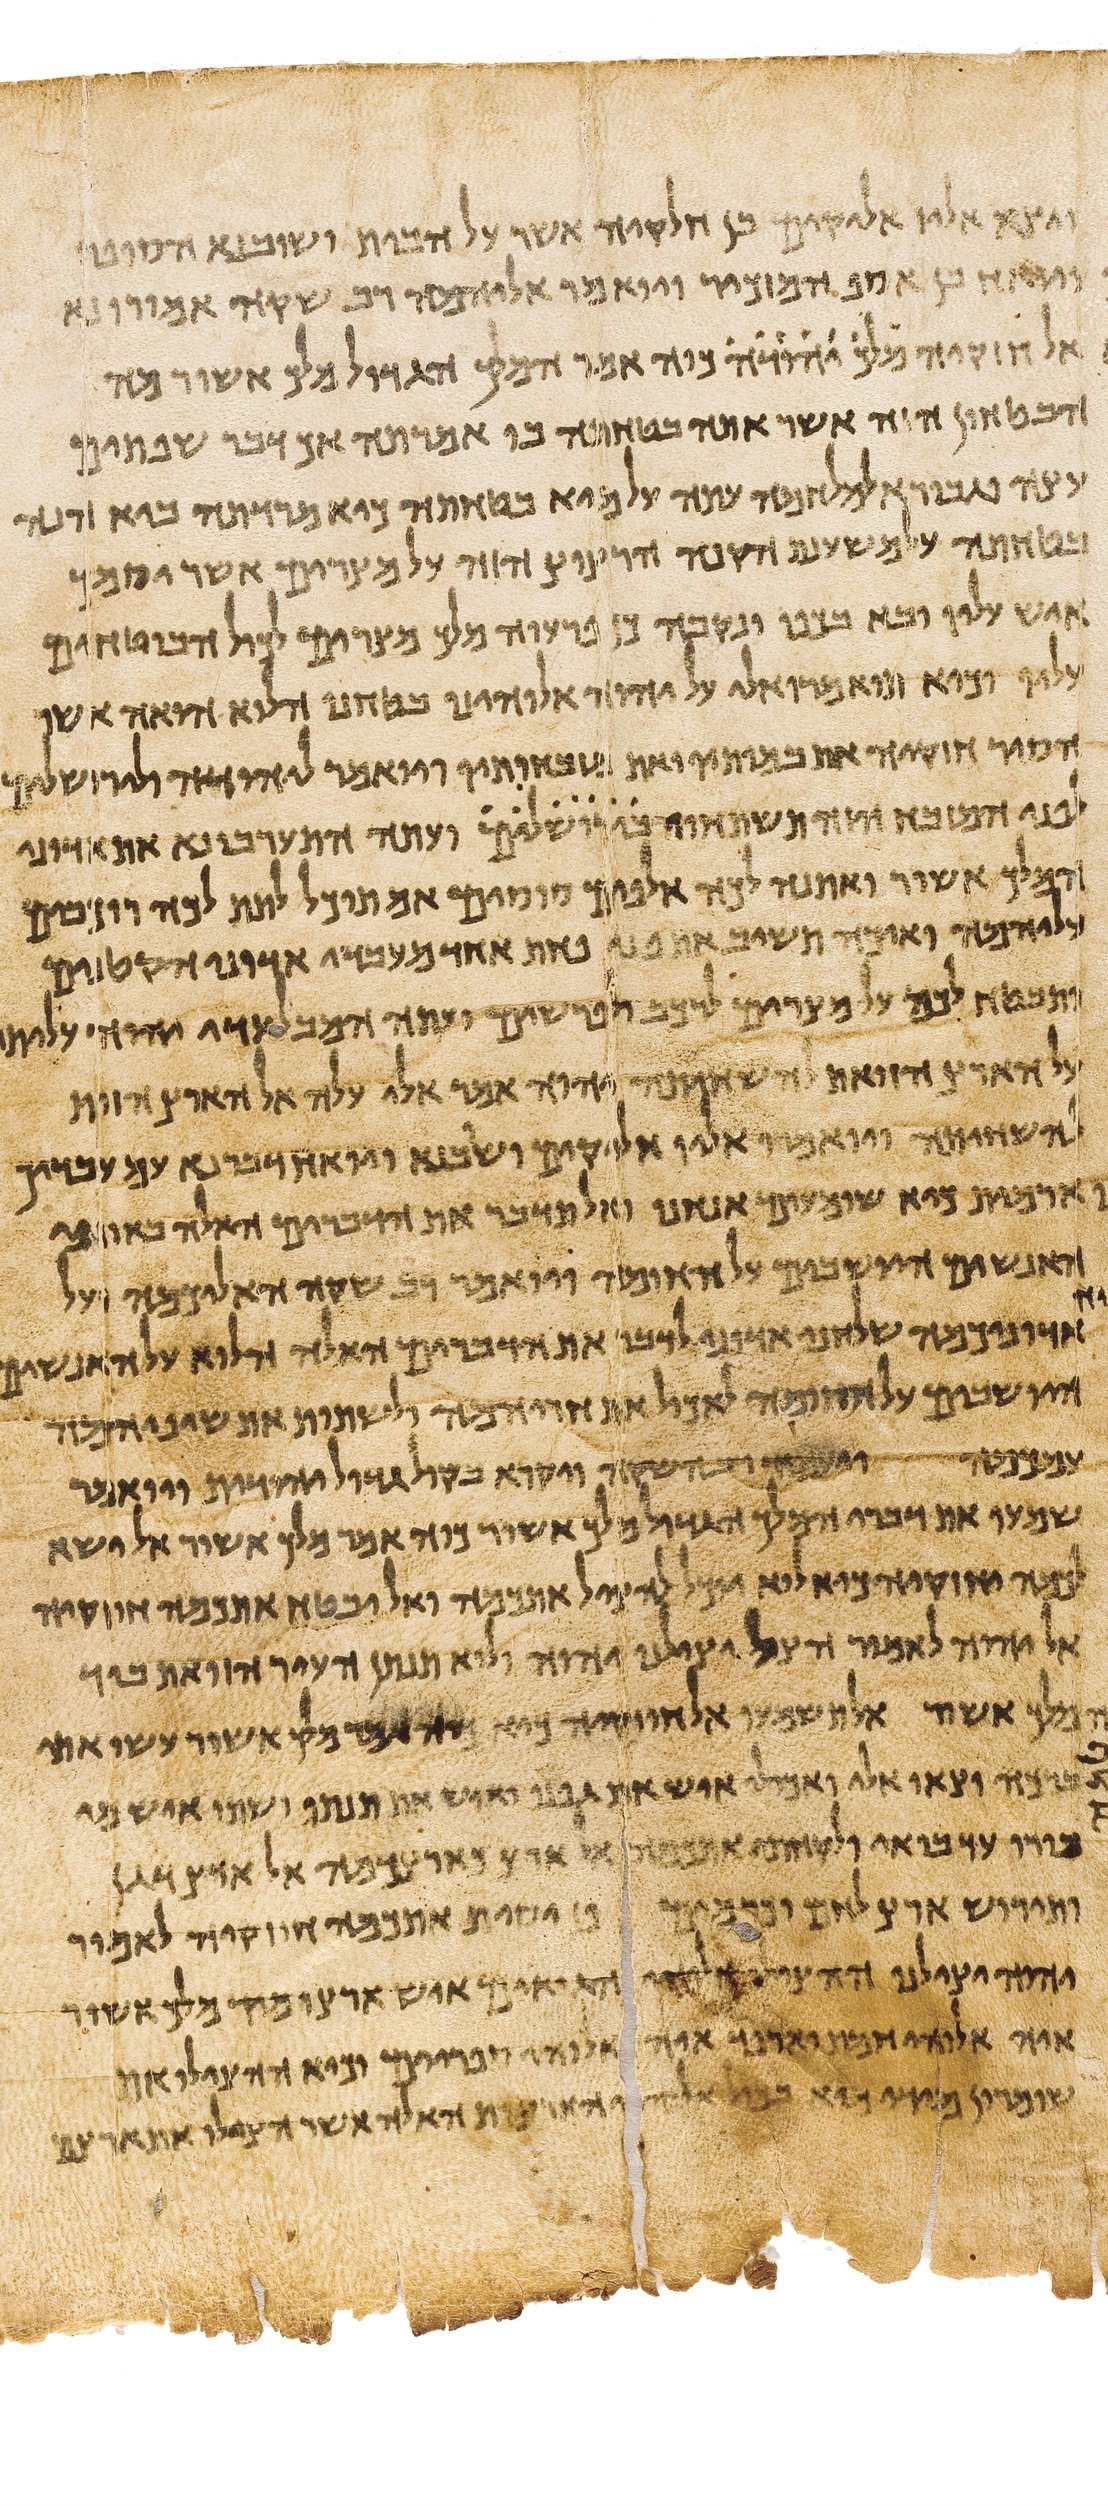 ויצא אליו אליקים בן חלקיה אשר על הבית ושובנא הסופר
ויואח בן אסף המזכיר ויואמר אליהמה רב שקה אמורו נא
אל חזקיה מלך יהודה כוה אמר המלך הגדול מלך אשור מה
הבטחון הזה אשר אתה בטחתה בו אמרתה אך דבר שפתים
עצה וגבורא למלחמה עתה על מיא בטחתה כיא מרדתה ביא הנה
בטחתה על משענת הקנה הרצוץ הזה על מצרים אשר יסמך
איש עליו ובא בכפו ונקבה כן פרעוה מלך מצרים לכול הבוטחים
עליו וכיא תואמרו אלי על יהוה אלוהינו בטחנו הלוא הואה אשר
הסיר חזקיה את במותיו ואת מזבחותיו ויואמר ליהודה ולירושלים
לפני המזבח הזה תשתחוו בירושלים ועתה התערבו נא את אדוני
המלך אשור ואתנה לכה אלפים סוסים אם תוכל לתת לכה רוכבים
עליהמה ואיכה תשיב את פני פחת אחד מעבדי אדוני הקטנים
ותבטח לכה על מצרים לרכב ולפרשים ועתה המבלעדי יהוה עליתי
על הארץ הזואת להשחיתה יהוה אמר אלי עלה אל הארץ הזות
להשחיתה ויואמרו אליו אליקים ושובנא ויואח דבר נא עם עבדיך
ארמית כיא שומעים אנחנו ואל תדבר את הדברים האלה באוזני
האנשים היושבים על החומה ויואמר רב שקה האליכמה ועל
אדוניכמה שלחני אדוני לדבר את הדברים האלה הלוא על האנשים
היושבים על החומה לאכול את חריהמה ולשתות את שיניהמה
עמכמה ויעמוד רב שקה ויקרא בקול גדול יהודית ויואמר
שמעו את דברי המלך הגדול מלך אשור כוה אמר מלך אשור אל ישא
לכמה יחזקיה כיא לוא יוכל להציל אתכמה ואל יבטח אתכמה חזקיה
אל יהוה לאמור הצל יצילנו יהוה ולוא תנתן העיר הזואת ביד
מלך אשור אל תשמעו אל חזקיה כיא כוה אמר מלך אשור עשו אתי
ברכה וצאו אלי ואכולו איש את גפנו ואיש את תנתו ושתו איש מי
בורו עד בואי ולקחתי אתכמה אל ארץ כארצכמה אל ארץ דגן
ותירוש ארץ לחם וכרמים פן יסית אתכמה חזקיה לאמור
יהוה יצילנו ההצילו אלוהי הגואים איש ארצו מיד מלך אשור
איה אלוהי חמת וארפד איה אלוהי ספריים וכיא ההצילו את
שומרון מידי מיא בכול אלוהי הארצות האלה אשר הצילו את ארצם